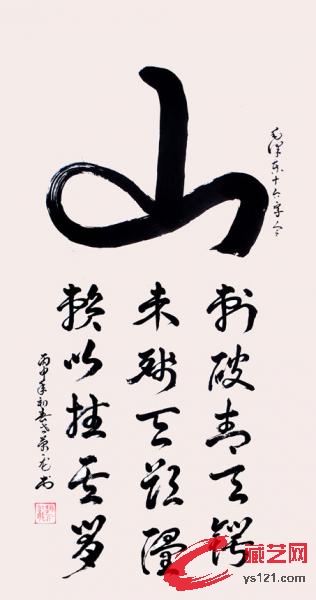 山
毛泽东十六字令
刺破青天锷
未残天欲堕
赖以拄其间
丙申年初春 书
藏艺网
ys121.com